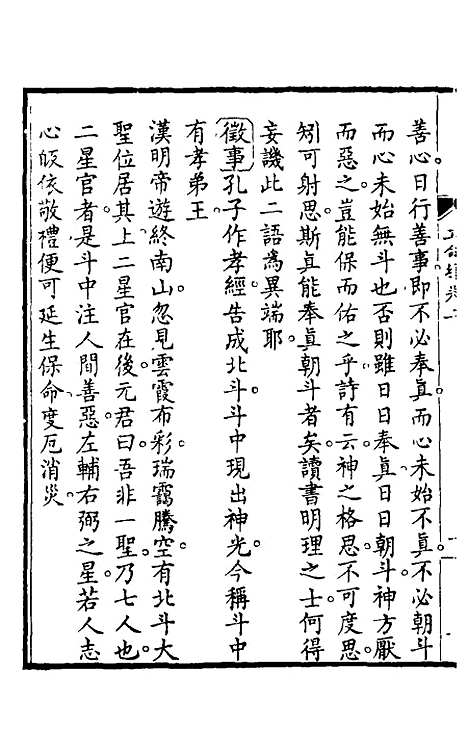 善心日行善事即不必奉真而心未始不真不必朝斗
而心未始無斗也否則雖日日奉真日日朝斗神方厭
而惡之豈能保而佑之乎詩有云神之格思不可度思
矧可射思斯真能奉真朝斗者矣讀書明理之士何得
妄譏此二語為異端耶
徵事孔子作孝經告成北斗斗中現出神光今稱斗中
有孝弟王
漢明帝遊終南山忽見雲霞布彩瑞靄騰空有北斗大
聖位居其上二星官在後元君曰吾非一聖乃七人也
二星官者是斗中注人間善惡左輔右弼之星若人志
心皈依敬禮便可延生保命度厄消災